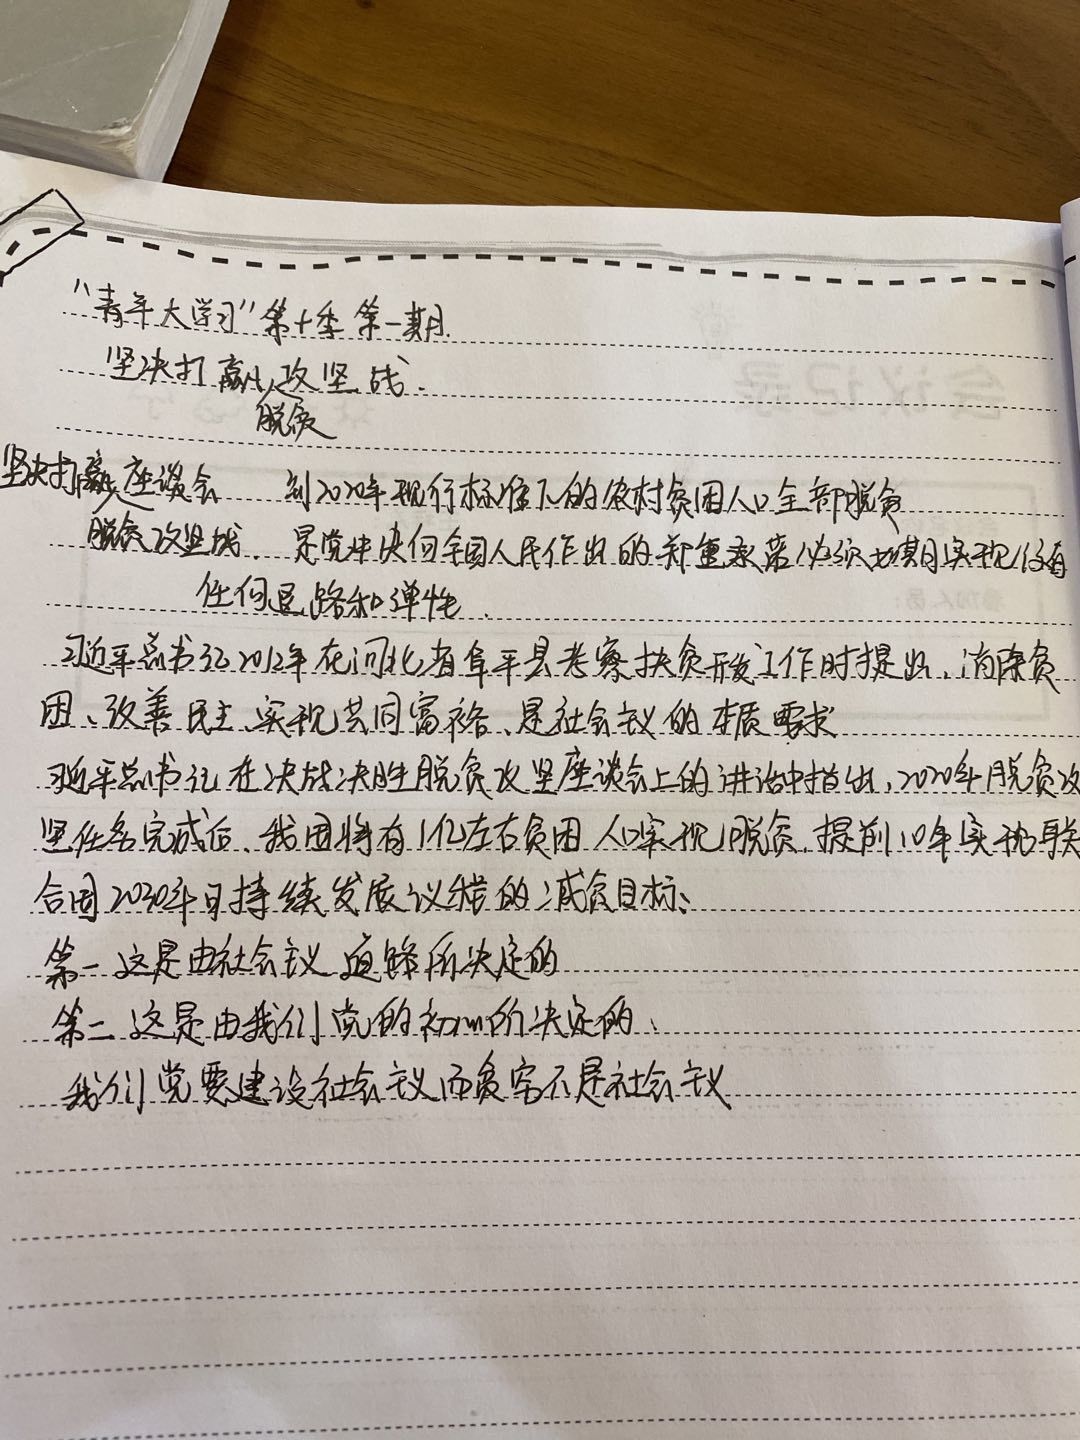 “青年大学习”第十季第一期
坚决打赢脱贫攻坚战.
坚决打赢脱贫攻坚战座谈会 到2020年现行标准下的农村贫困人口全部脱贫
是党中央向全国人民作出的郑重承诺必须如期实现没有
任何退路和弹性.
习近平总书记2012年在河北省阜平县考察扶贫开发工作时提出、消除贫
困、改善民主、实现共同富裕、是社会主义的本质要求
习近平总书记在决战决胜脱贫攻坚座谈会上的讲话中指出,2020年脱贫攻
坚任务完成后、我国将有1亿左右贫困人口实现脱贫.提前10年实现联
合国2030年可持续发展议程的减贫目标、
第一这是由社会主义道路所决定的
第二这是由我们党的初心所决定的、
我们党要建设社会主义而贫穷不是社会主义
会议记录
参加人员: